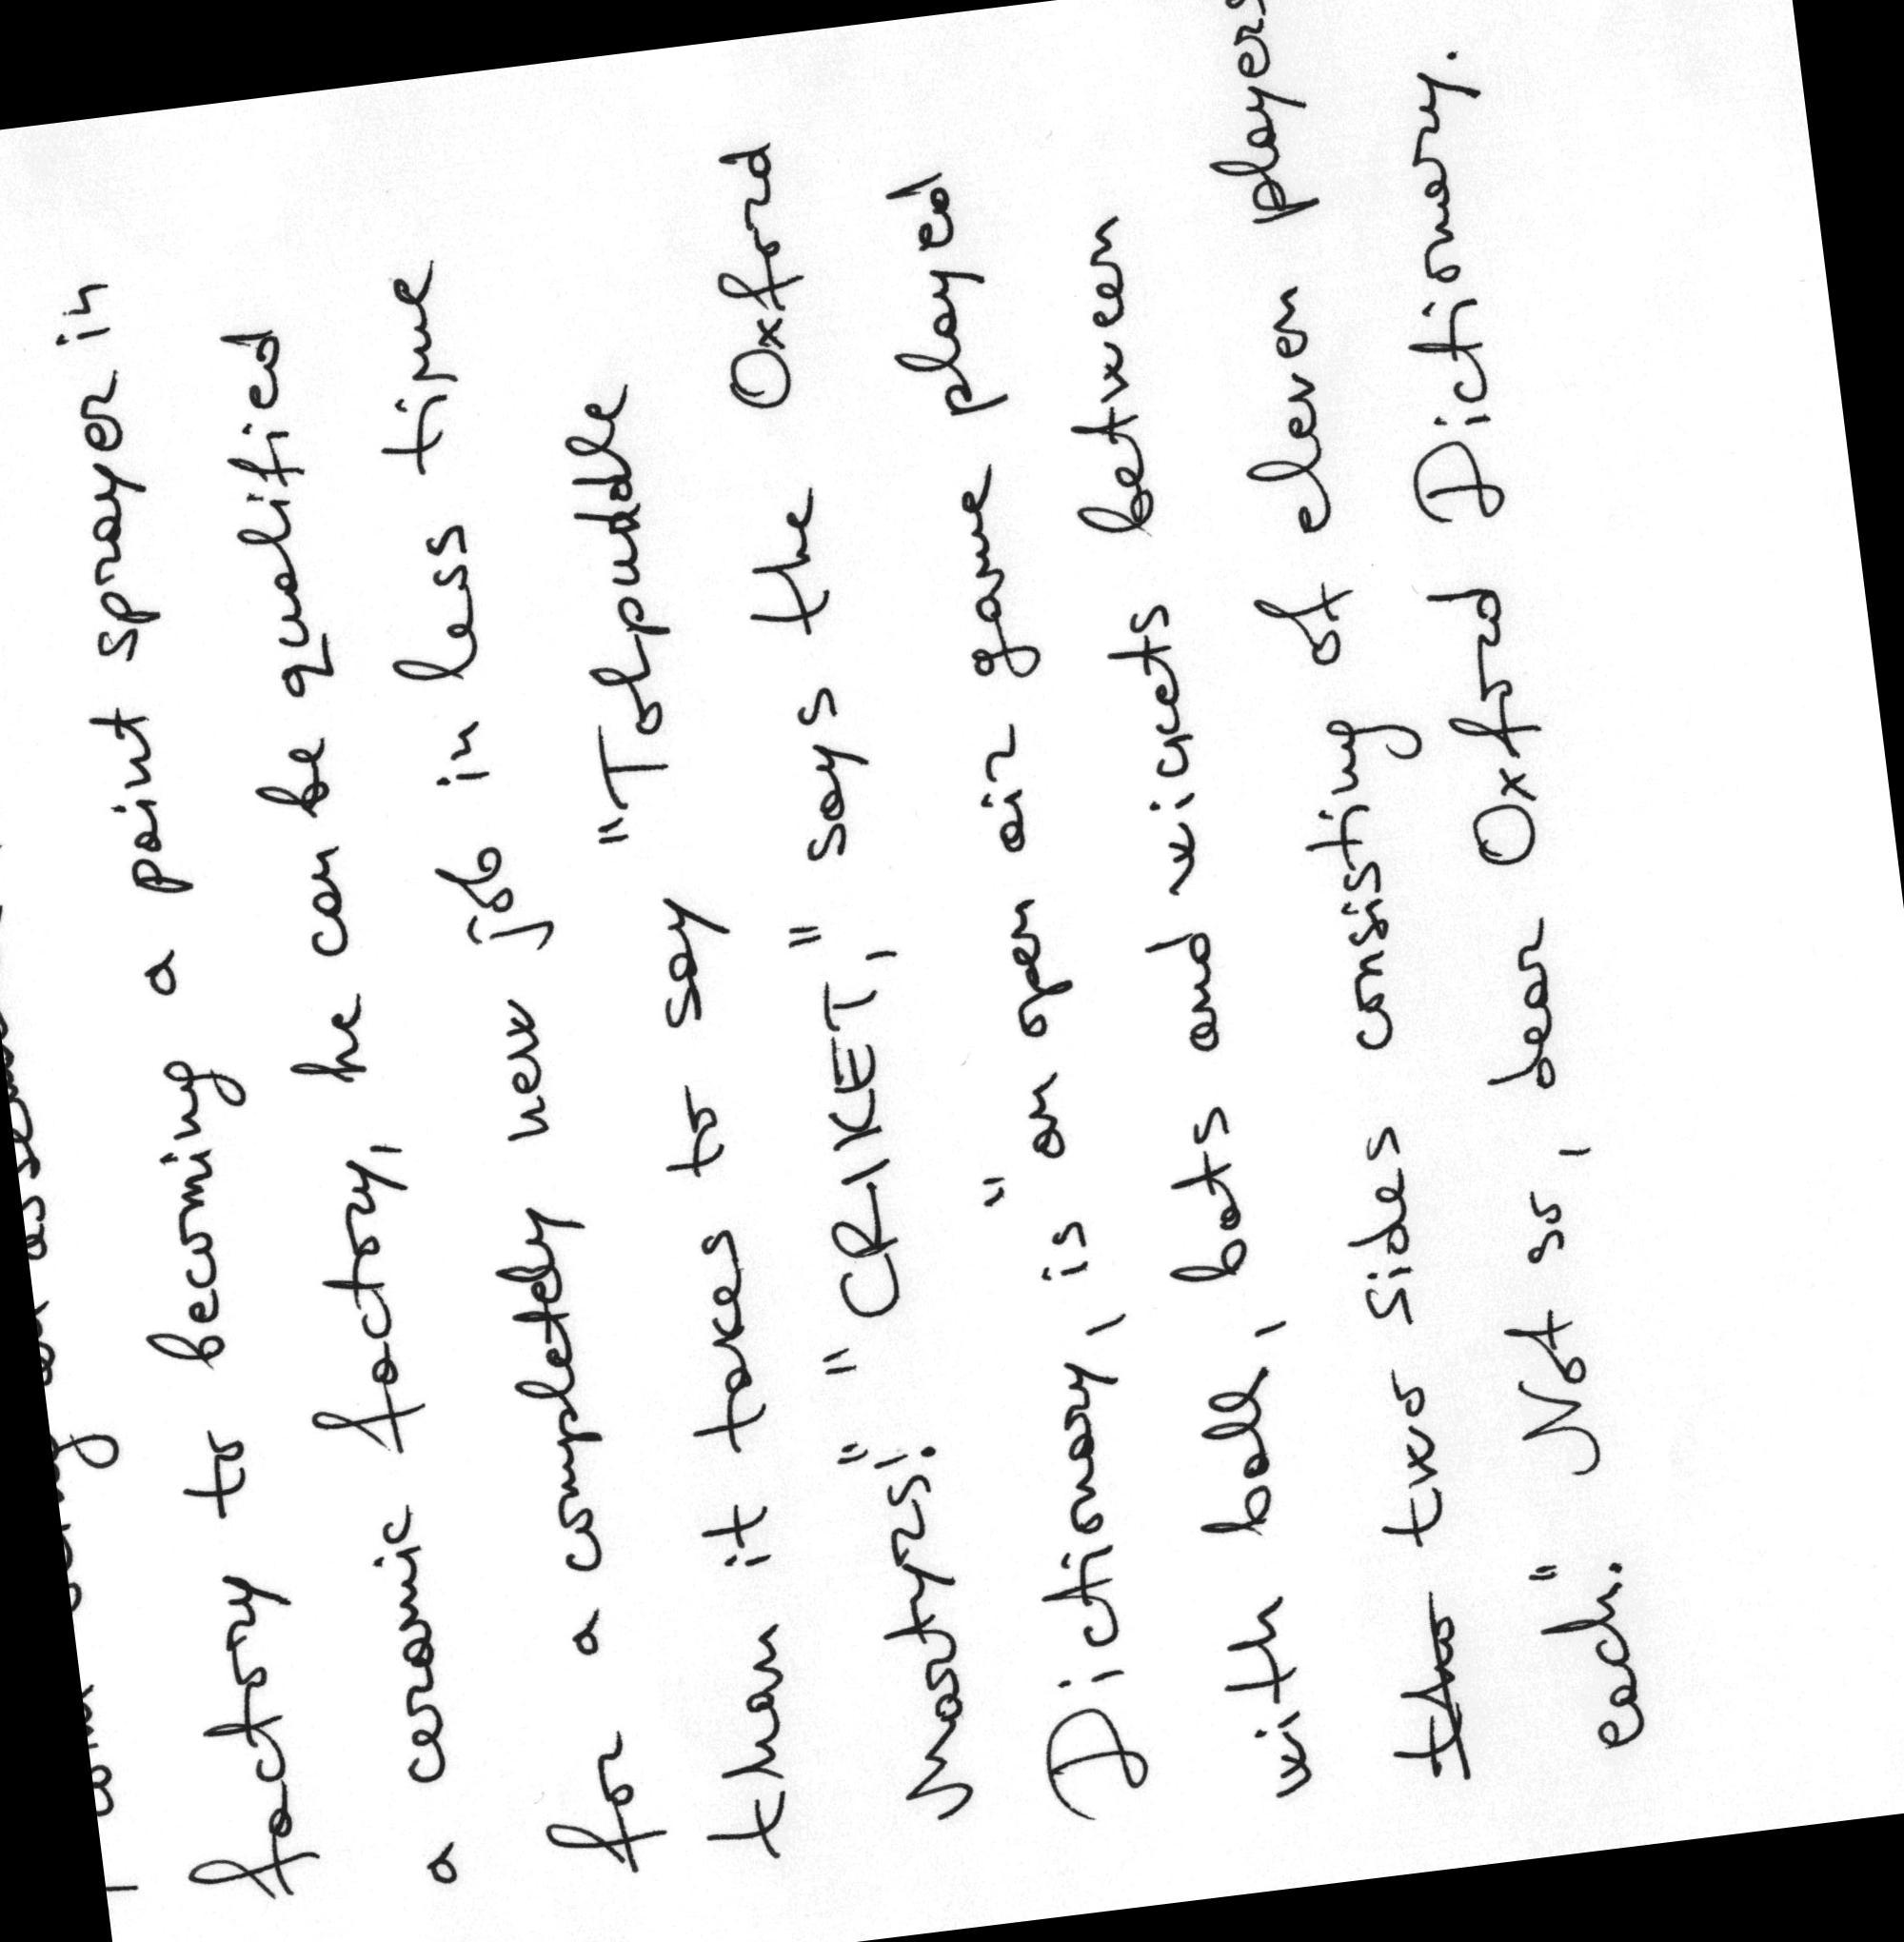 factory to becoming a paint sprayer in
a ceramic factory, he can be qualified
for a completely new job in less time
than it takes to say "Tolpuddle
Martyrs!" "CRIKET," says the Oxford
Dictionary, is "an open air game played
with ball, bats and wickets between
two sides consisting of eleven players
each." Not so, dear Oxford Dictionary.